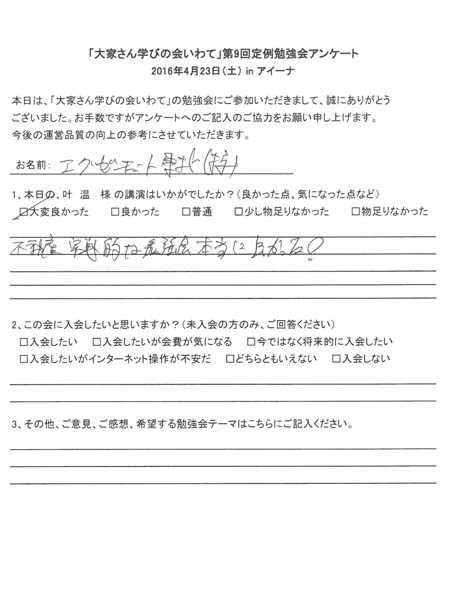 「大家さん学びの会いわて」第9回定例勉強会アンケート
2016年4月23日(土) in アイーナ
本日は、「大家さん学びの会いわて」の勉強会にご参加いただきまして、誠にありがとう
ございました。お手数ですがアンケートへのご記入のご協力をお願い申し上げます。
今後の運営品質の向上の参考にさせていただきます。
お名前:
1、本日の、叶 温 様の講演はいかがでしたか?(良かった点、気になった点など)
☑大変良かった □良かった □普通 □少し物足りなかった □物足りなかった
不動産 的な勉強会本当に
2、この会に入会したいと思いますか?(未入会の方のみ、ご回答ください)
□入会したい □入会したいが会費が気になる □今ではなく将来的に入会したい
□入会したいがインターネット操作が不安だ □どちらともいえない □入会しない
3、その他、ご意見、ご感想、希望する勉強会テーマはこちらにご記入ください。